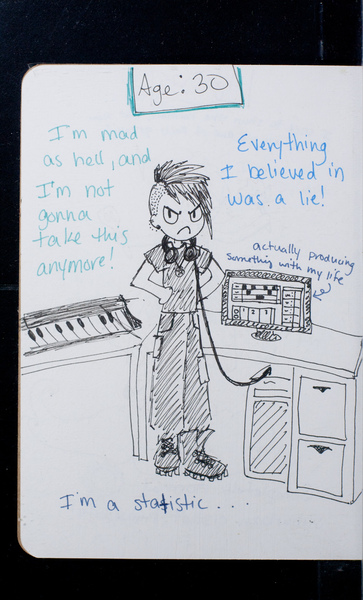 Age: 30
I'm mad
as hell, and
I'm not
gonna
take this
anymore!
Everything
I believed in
was a lie!
actually producing
something with my life
I'm a statistic...